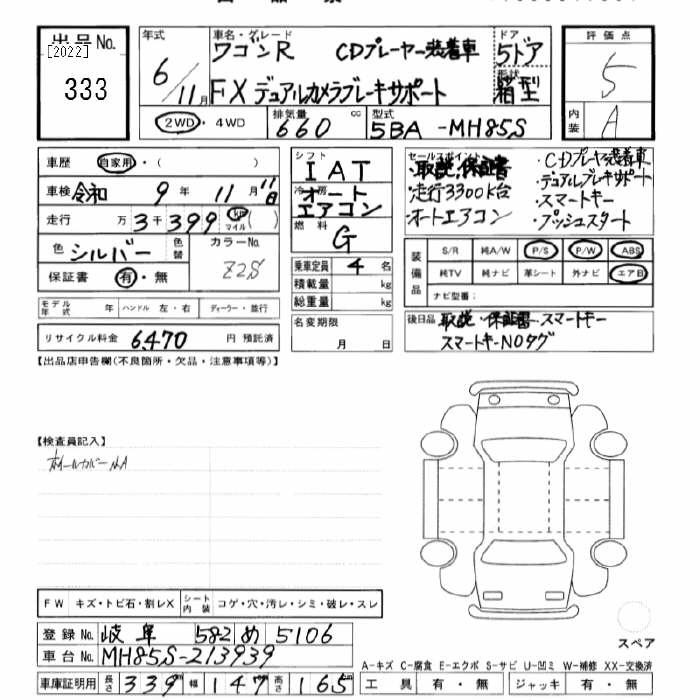 出品No.
[2022]
333
年式
6/11月
車名・グレード
ワゴンR CDプレーヤー装着車
FX デュアルカメラブレーキサポート
ドア
5ドア
形状
箱型
2WD・4WD
排気量
660 cc
型式
5BA-MH85S
評価点
5
内装
A
車歴 自家用・( )
車検 令和 9年 11月 11日
走行 万 3千399 km マイル ( )
色 シルバー 色替
カラーNo.
Z2S
保証書 有・無
モデル年式 年 ハンドル 左・右 ディーラー・並行
リサイクル料金 6,470 円 預託済
シフト
IAT
冷房
オートエアコン
燃料
G
乗車定員 4 名
積載量 kg
総重量 kg
名変期限
月 日
セールスポイント
取説、保証書
・走行3300K台
・オートエアコン
・CDプレーヤー装着車
・デュアルブレーキサポート
・スマートキー
・プッシュスタート
装備品
S/R 純A/W P/S P/W ABS
純TV 純ナビ 革シート 外ナビ エアB
ナビ型番:
後日品 取説・保証書・スマートキー
スマートキーNOタグ
【出品店申告欄(不良箇所・欠品・注意事項等)】
【検査員記入】
ホイールカバーNA
FW キズ・トビ石・割レX シート内装 コゲ・穴・汚レ・シミ・破レ・スレ
登録No. 岐阜 582 め 5106
車台No. MH85S-213939
車庫証明用 長さ 339 幅 147 高さ 165
スペア
A-キズ C-腐食 E-エクボ S-サビ U-凹ミ W-補修 XX-交換済
工具 有・無 ジャッキ 有・無